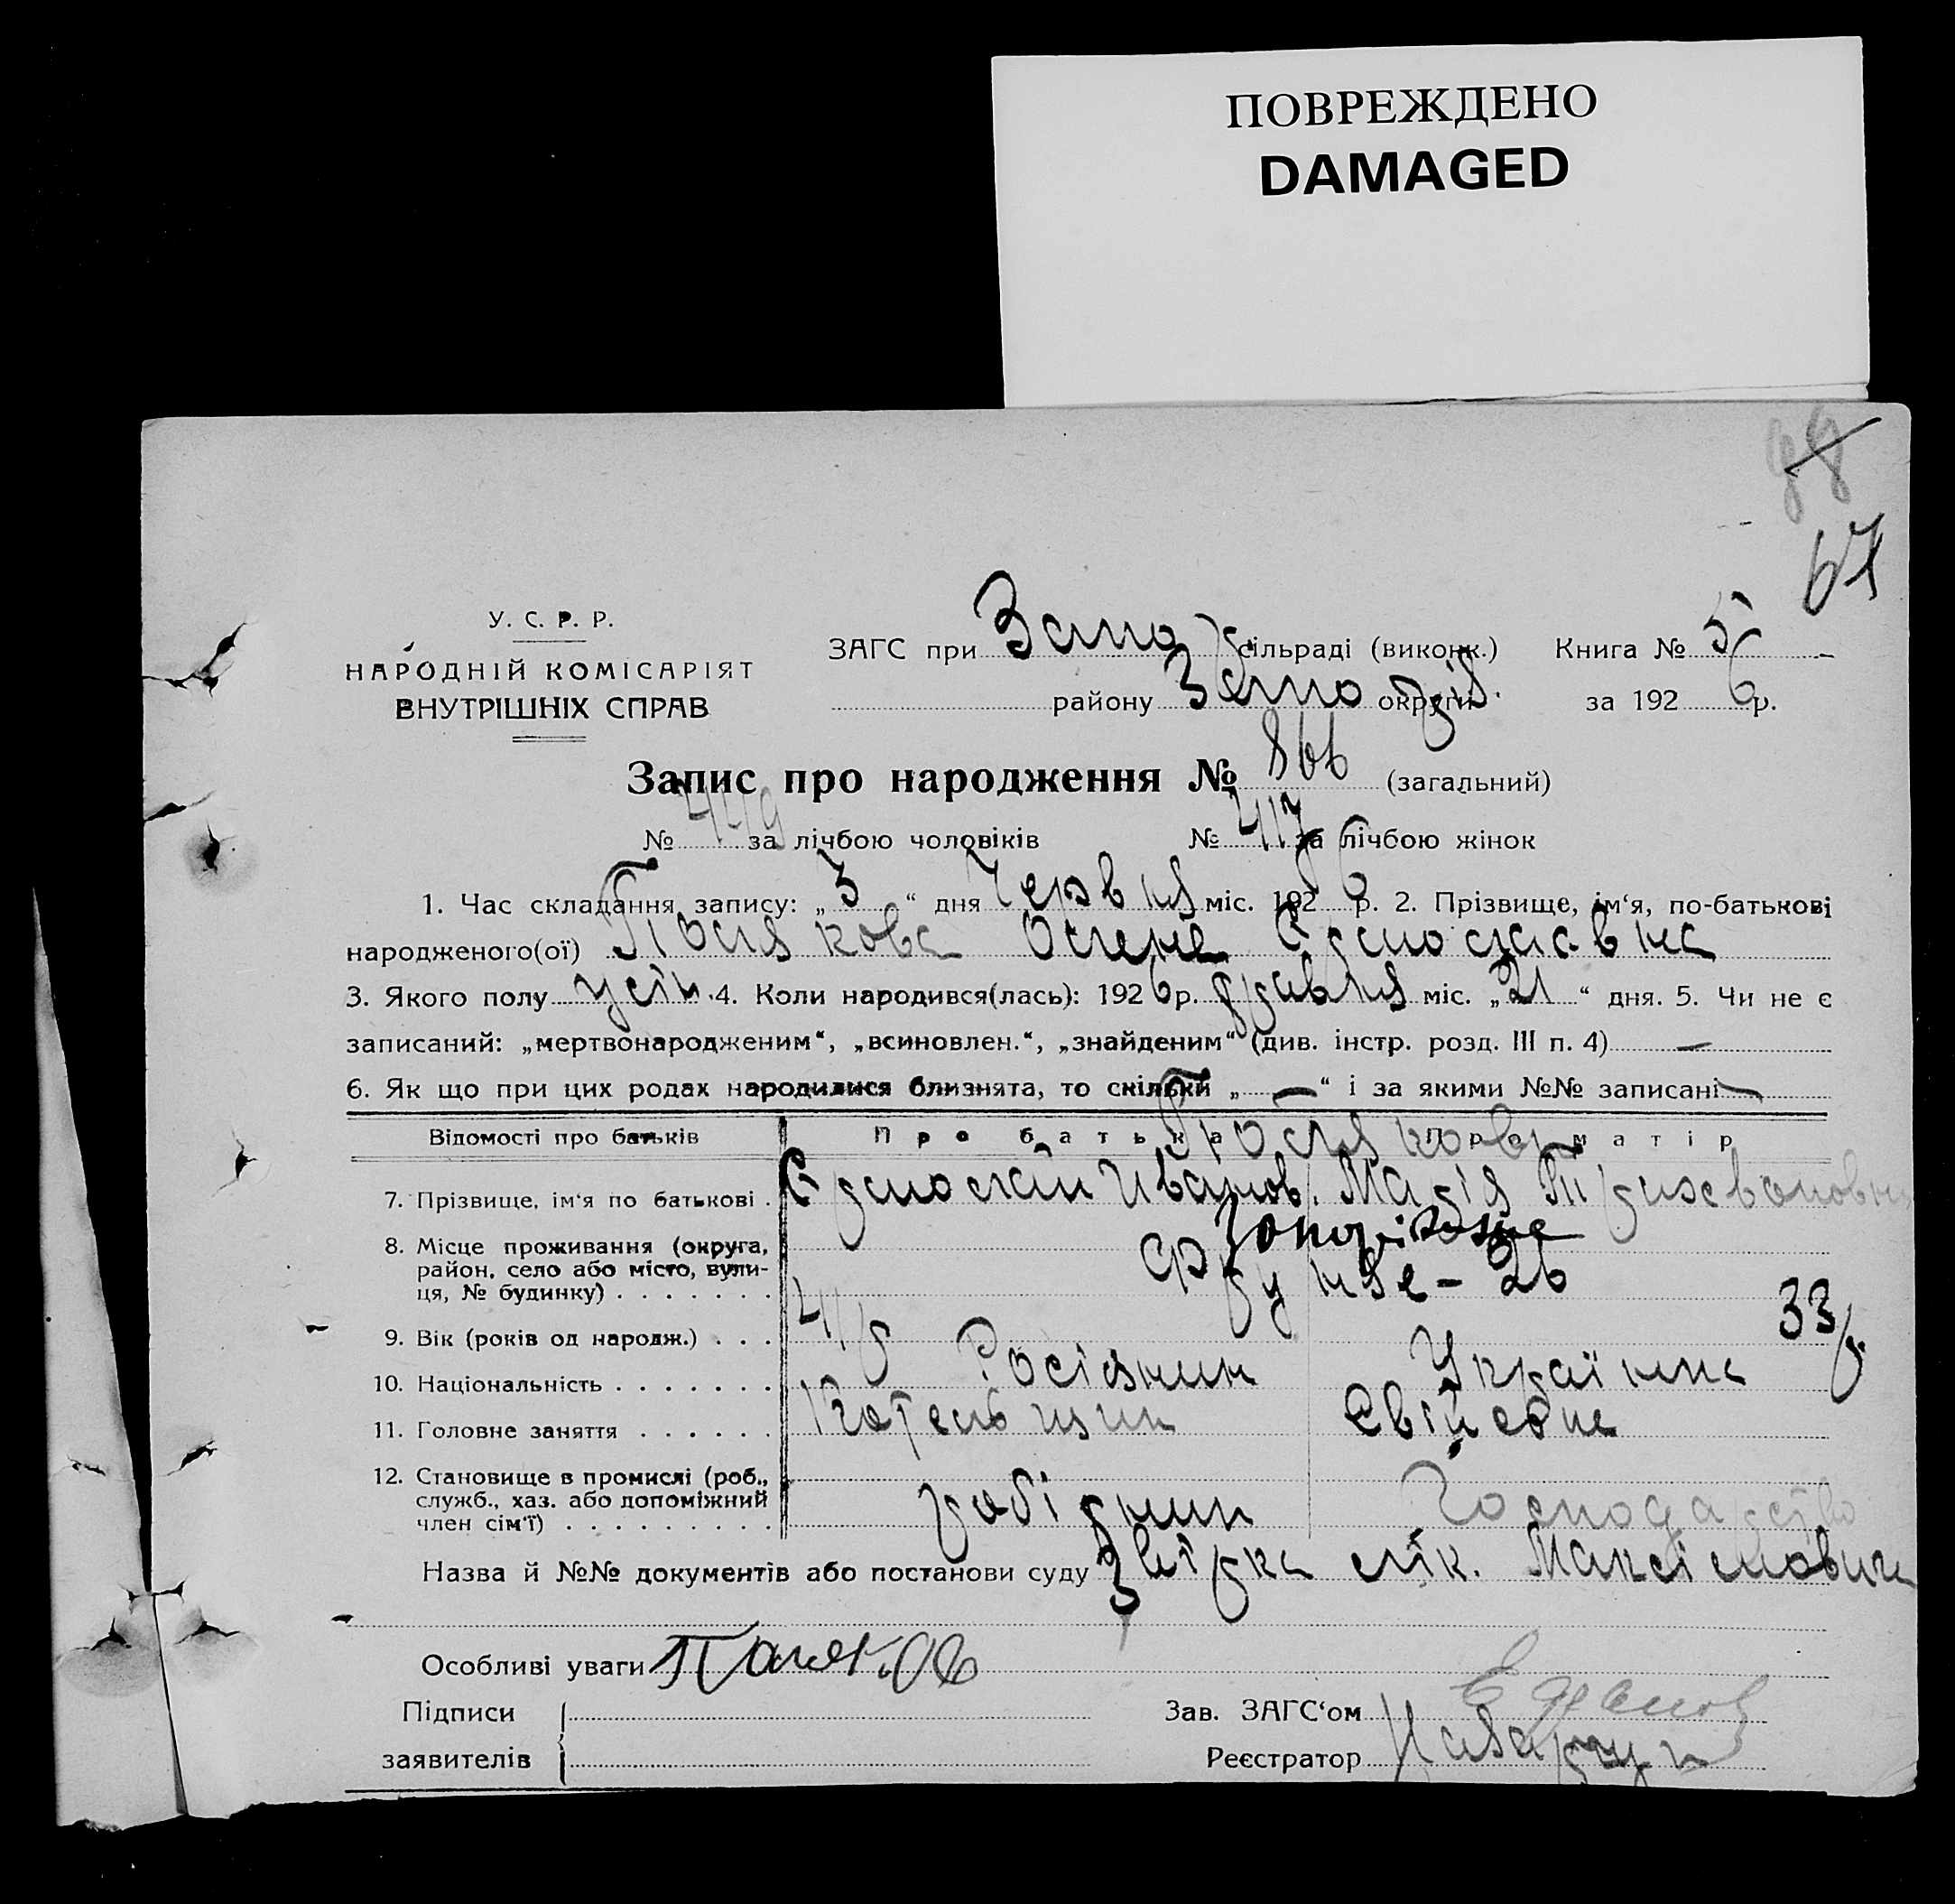 ПОВРЕЖДЕНО
DAMAGED
67
У. С. Р. Р.
НАРОДНІЙ КОМІСАРІЯТ
ВНУТРІШНІХ СПРАВ
ЗАГС при Запо сільраді (виконк.) Книга № 5
району Запо округи за 1926 р.
Запис про народження № 866 (загальний)
№ 449 за лічбою чоловіків № 417 за лічбою жінок
1. Час складання запису: „3“ дня Червня міс. 1926 р. 2. Прізвище, ім‘я, по-батькові
народженого(ої) Полякова
3. Якого полу жін. 4. Коли народився(лась): 1926 р. травня міс. „21“ дня. 5. Чи не є
записаний: „мертвонародженим“, „всиновлен.“, „знайденим“ (див. інстр. розд. III п. 4) —
6. Як що при цих родах народилися близнята, то скільки „—“ і за якими №№ записані —
Відомості про батьків Про батька Про матір
Полякови
7. Прізвище, ім‘я по батькові . Іванов. Марія
8. Місце проживання (округа, район, село або місто, вулиця, № будинку) . . . . . . . Запоріжжя
Фрунзе – 26
9. Вік (років од народж.) . . . 41 р 33 р.
10. Національність . . . . . . . Росіянин Українка
11. Головне заняття . . . . . . Котельщик
12. Становище в промислі (роб., служб., хаз. або допоміжний член сім‘ї) . . . . . . . . . робітник Господарство
Назва й №№ документів або постанови суду лік. Максімовича
Особливі уваги
Підписи
заявителів
Зав. ЗАГС‘ом
Реєстратор